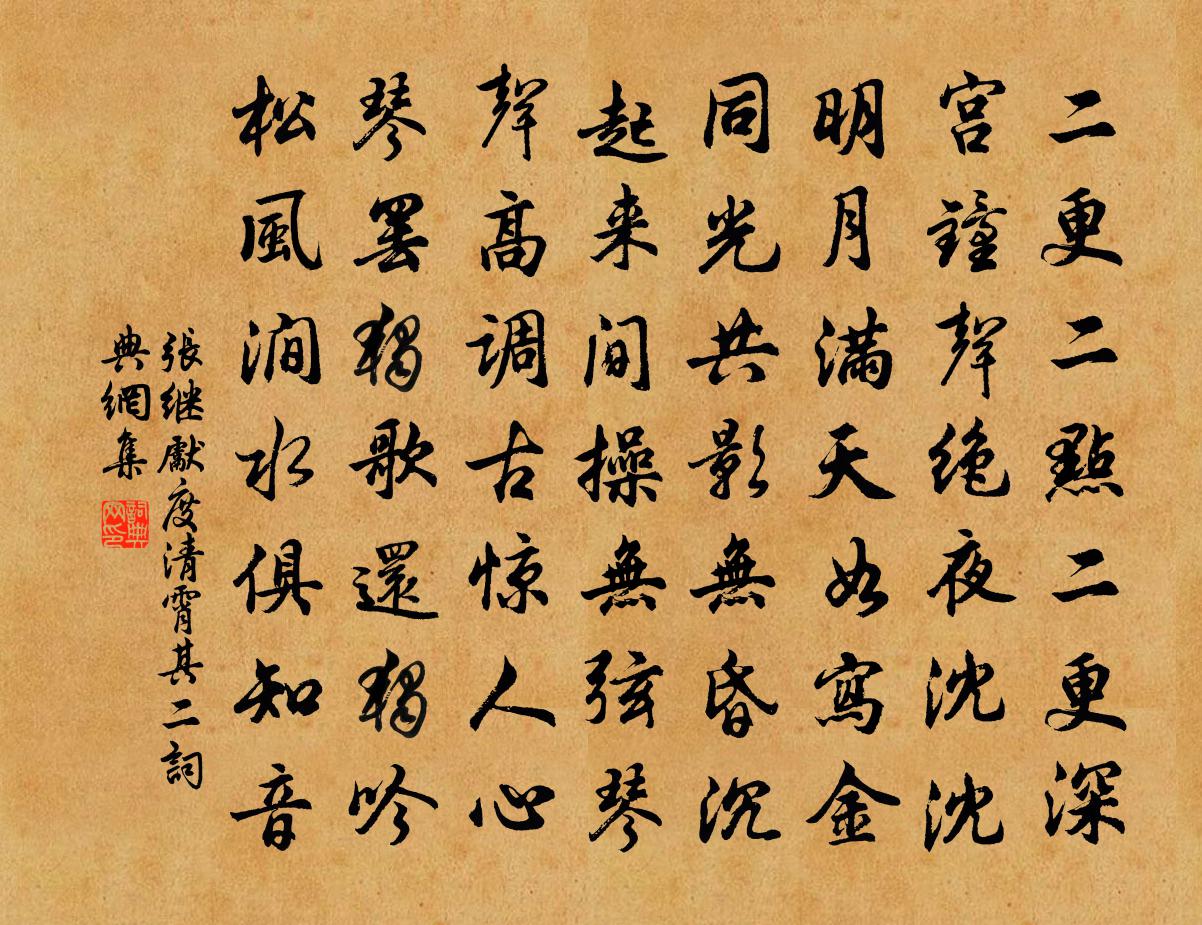 二更二點二更深
宮鐘聲絶夜沈沈
明月滿天如寫金
同光共影無昏沉
起来間操無弦琴
聲高調古惊人心
琴罢獨歌還獨吟
松風澗水俱知音
張继獻度清霄其二詞
典網集
詞典網印